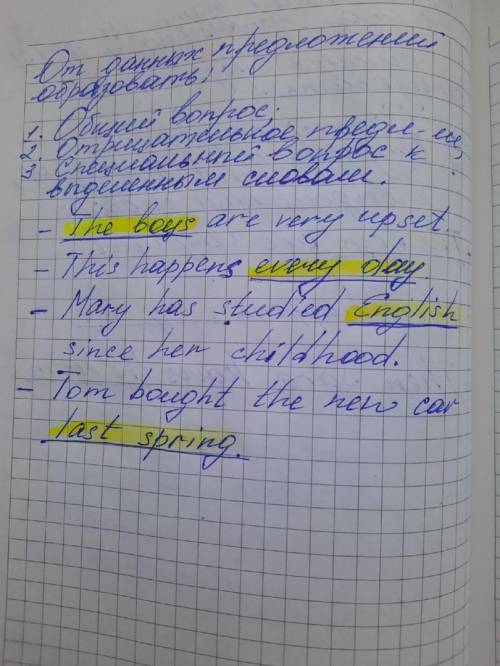 От данных предложений
образовать:
1. Общий вопрос;
2. Отрицательное предл-ие;
3 Специальный вопрос к
выделенным словам.
- The boys are very upset
- This happens every day
- Mary has studied English
since her childhood.
- Tom bought the new car
last spring.